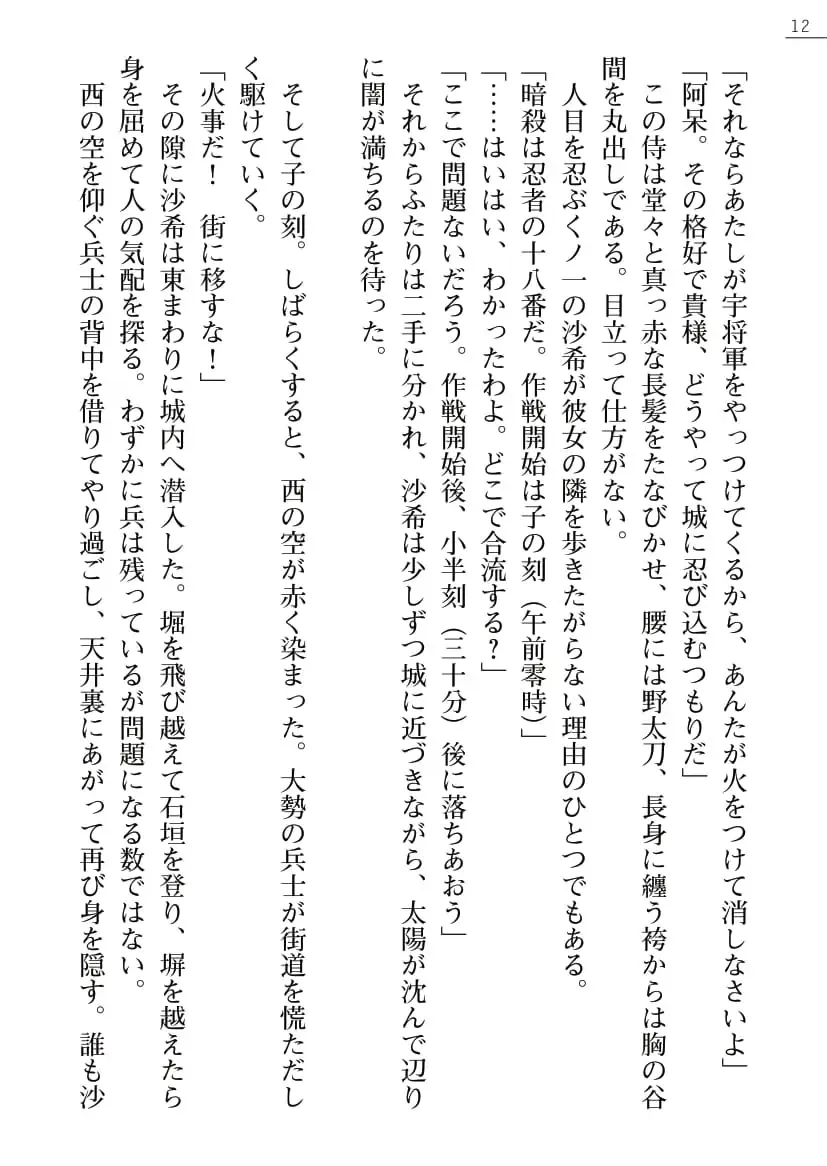 12
「それならあたしが宇将軍をやっつけてくるから、あんたが火をつけて消しなさいよ」
「阿呆。その格好で貴様、どうやって城に忍び込むつもりだ」
　この侍は堂々と真っ赤な長髪をたなびかせ、腰には野太刀、長身に纏う袴からは胸の谷
間を丸出しである。目立って仕方がない。
　人目を忍ぶくノ一の沙希が彼女の隣を歩きたがらない理由のひとつでもある。
「暗殺は忍者の十八番だ。作戦開始は子の刻（午前零時）」
「……はいはい、わかったわよ。どこで合流する？」
「ここで問題ないだろう。作戦開始後、小半刻（三十分）後に落ちあおう」
　それからふたりは二手に分かれ、沙希は少しずつ城に近づきながら、太陽が沈んで辺り
に闇が満ちるのを待った。
　そして子の刻。しばらくすると、西の空が赤く染まった。大勢の兵士が街道を慌ただし
く駆けていく。
「火事だ！　街に移すな！」
　その隙に沙希は東まわりに城内へ潜入した。堀を飛び越えて石垣を登り、塀を越えたら
身を屈めて人の気配を探る。わずかに兵は残っているが問題になる数ではない。
　西の空を仰ぐ兵士の背中を借りてやり過ごし、天井裏にあがって再び身を隠す。誰も沙